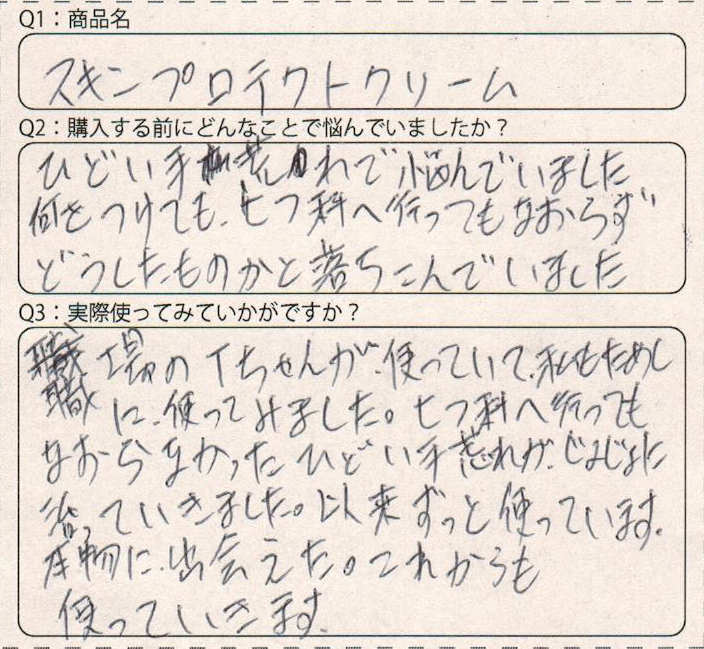 Q1：商品名
スキンプロテクトクリーム
Q2：購入する前にどんなことで悩んでいましたか？
ひどい手荒れで悩んでいました
何をつけても、ヒフ科へ行ってもなおらず
どうしたものかと落ちこんでいました
Q3：実際使ってみていかがですか？
職場のTちゃんが、使っていて、私もためし
に、使ってみました。ヒフ科へ行っても
なおらなかったひどい手荒れが、じょじょに
治っていきました。以来ずっと使っています。
本物に、出会えた。これからも
使っていきます。